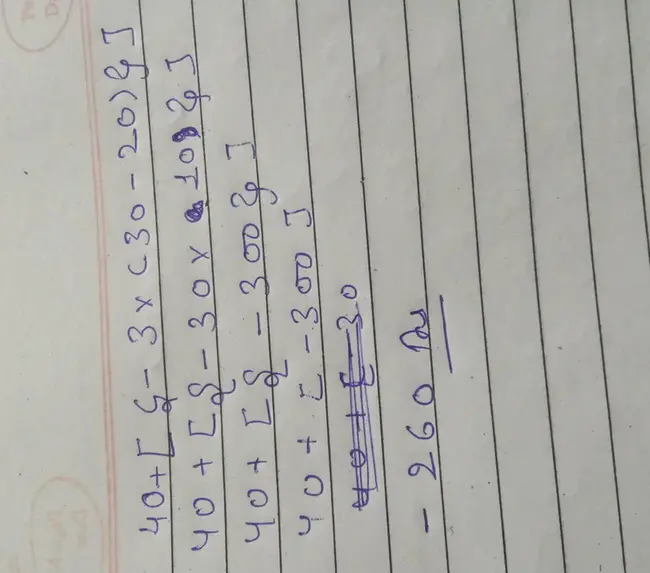 40+[{-3×(30-20)}]
40+[{-30×10}]
40+[{-300}]
40+[-300]
-260 Ans